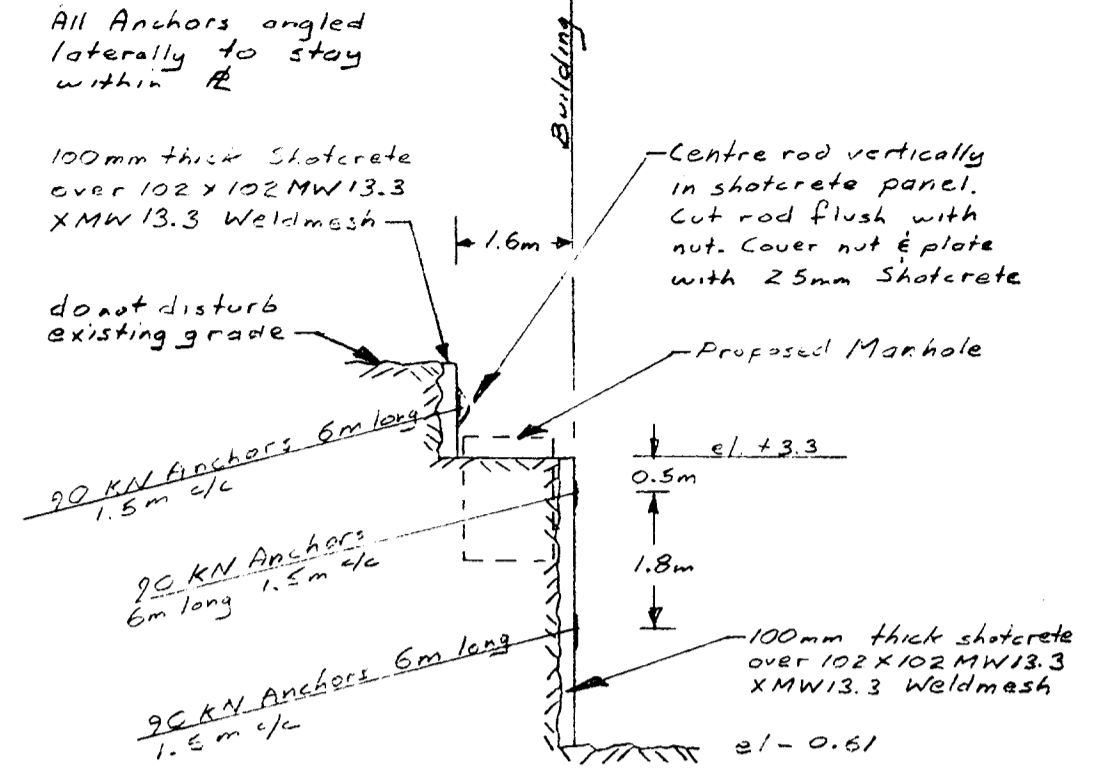 All Anchors angled
laterally to stay
within ℄
Building
100mm thick Shotcrete
over 102 x 102 MW 13.3
X MW 13.3 Weldmesh
1.6m
Centre rod vertically
in shotcrete panel.
Cut rod flush with
nut. Cover nut & plate
with 25mm Shotcrete
do not disturb
existing grade
Proposed Manhole
90 KN Anchors 6m long
1.5m c/c
el. +3.3
0.5m
90 KN Anchors
6m long 1.5m c/c
1.8m
90 KN Anchors 6m long
1.5m c/c
100mm thick shotcrete
over 102 X 102 MW13.3
X MW13.3 Weldmesh
el - 0.61